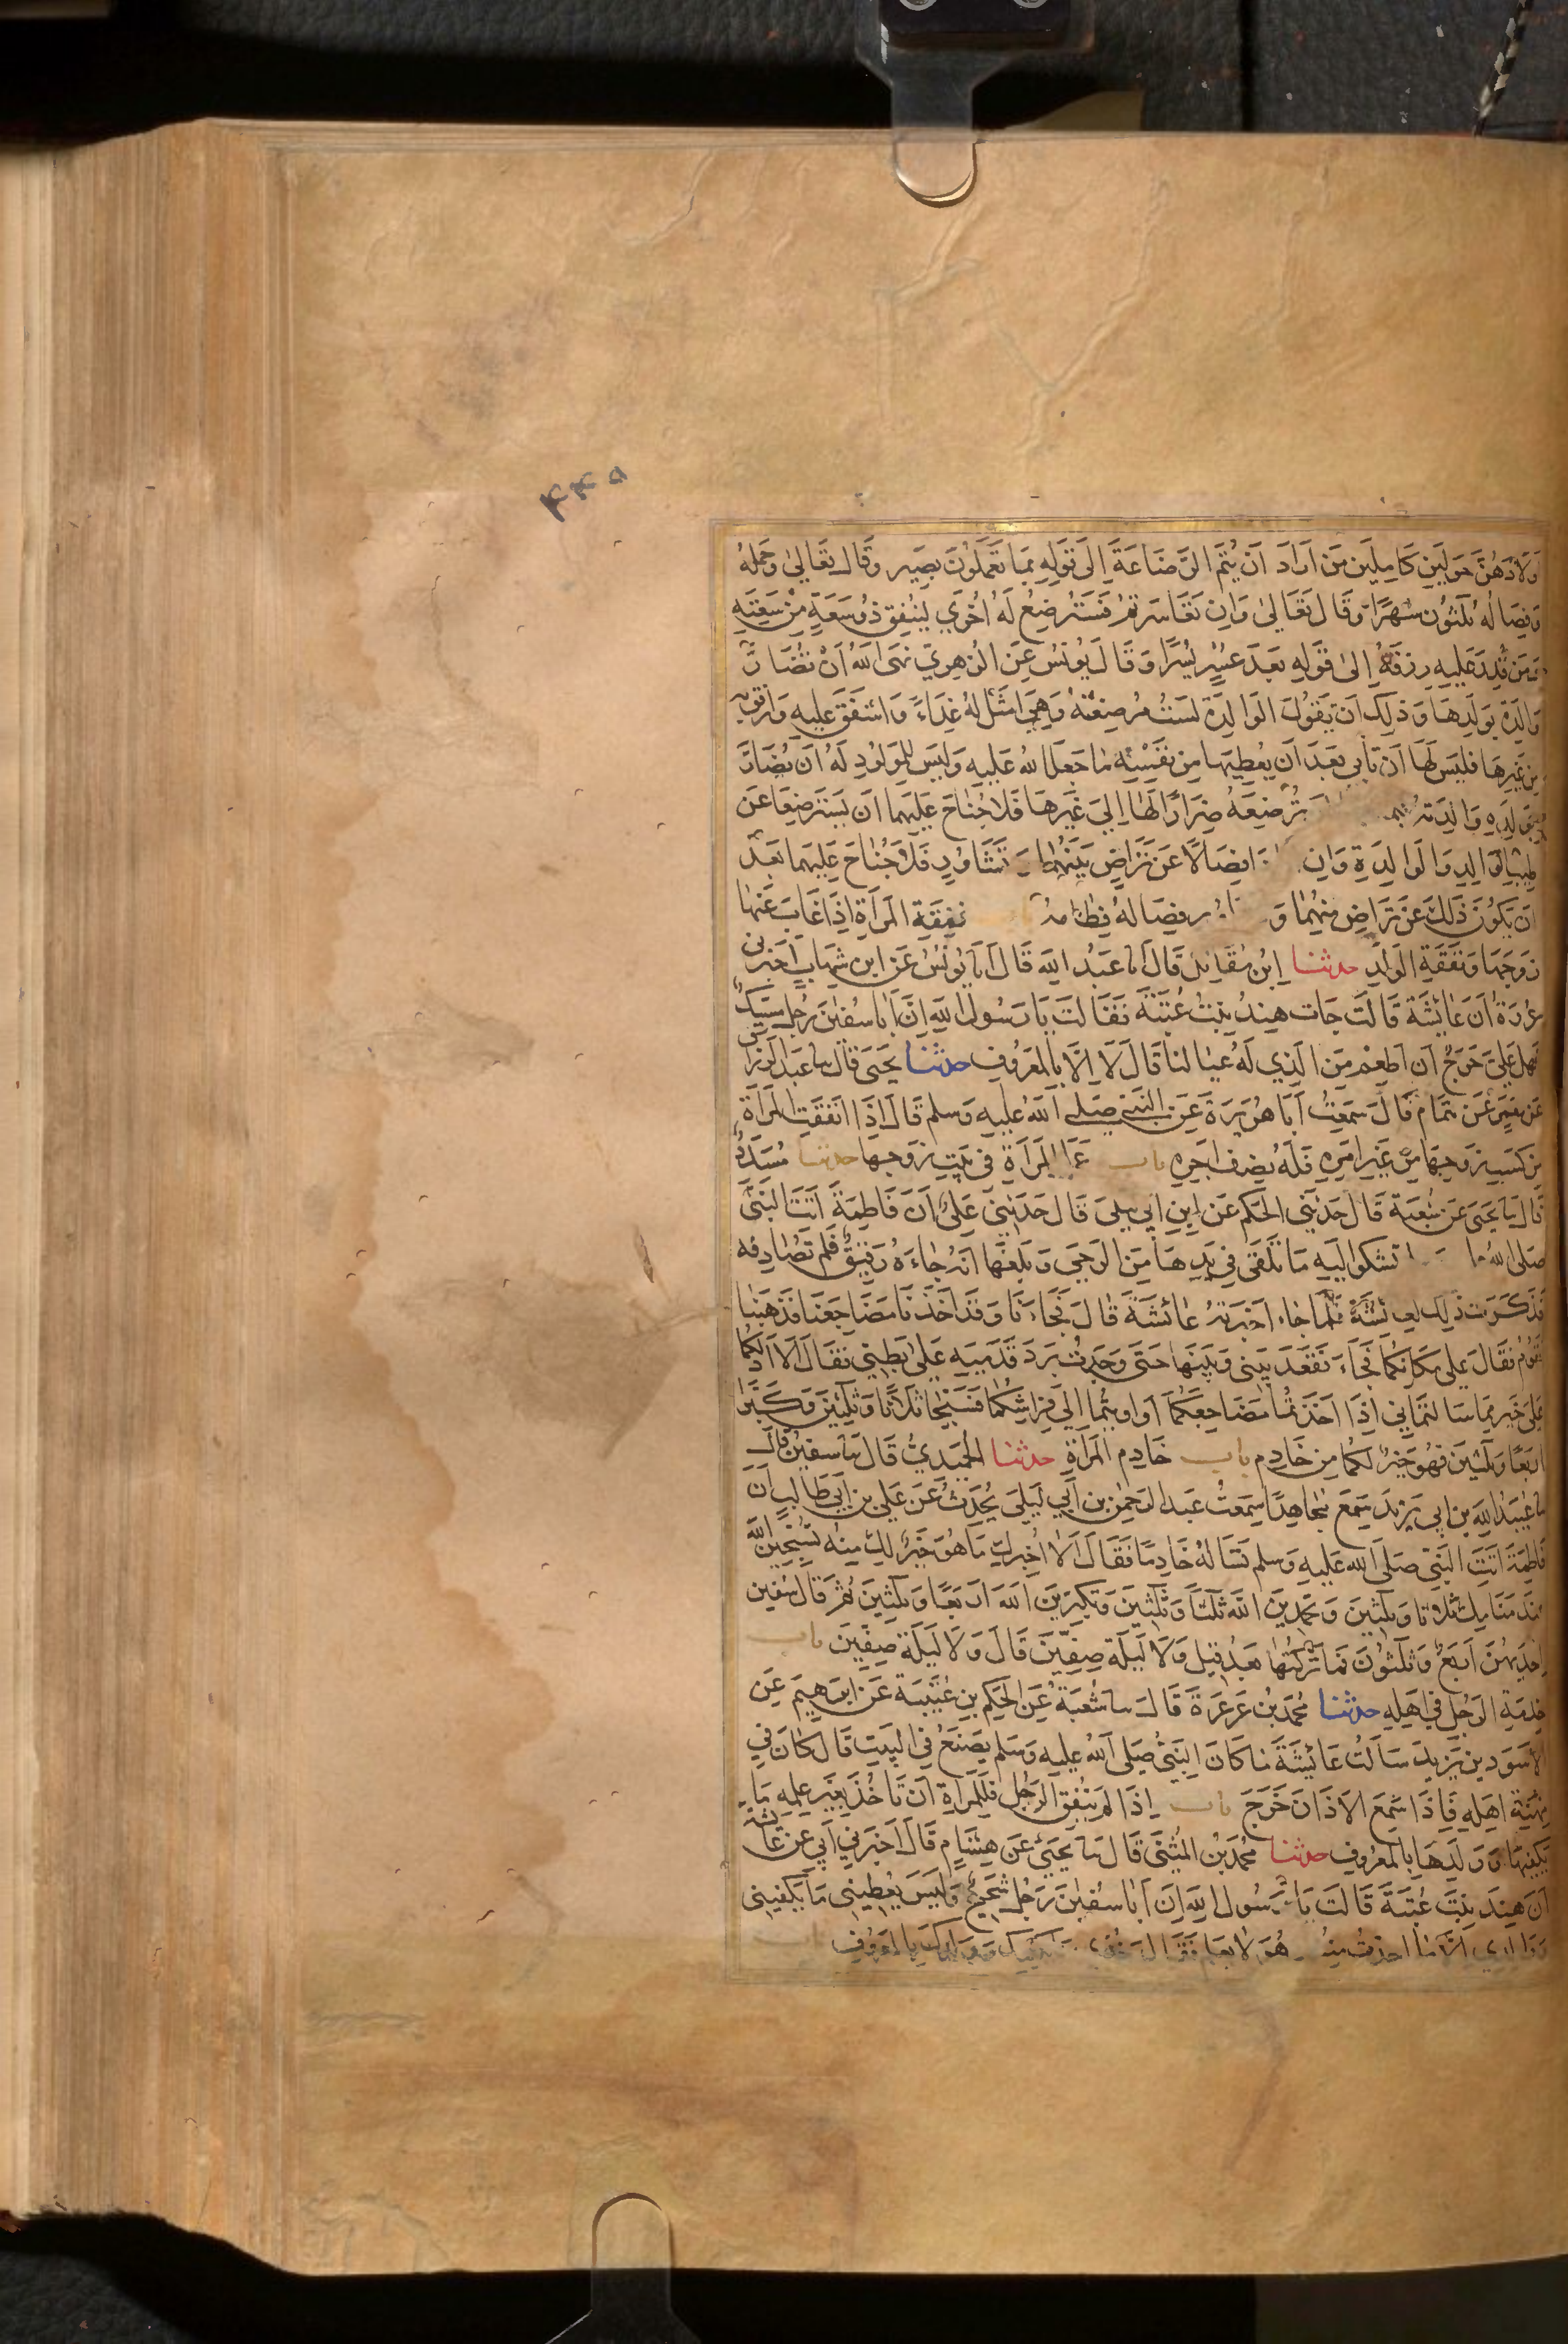 ٤٤٥
اولادهن حولين كاملين من اراد ان يتم الرضاعة الى قوله بما تعملون بصير وقال تعالى وحمله
وفصاله ثلثون شهرا وقال تعالى وان تعاسرتم فسترضع له اخرى لينفق ذو سعة من سعته
ومن قدر عليه رزقه الى قوله بعد عسر يسرا وقال يونس عن الزهري نهى الله ان تضار
والدة بولدها وذلك ان تقول الوالدة لست مرضعته وهي امثل له غذاء واشفق عليه وارفق به
من غيرها فليس لها ان تابى بعد ان يعطيها من نفسه ما جعل الله عليه وليس للمولود له ان يضار
بولده والدته ترضعه ضرارا لها الى غيرها فلا جناح عليهما ان يسترضعا عن
طيب الوالد والوالدة وان فصالا عن تراض بينهما وتشاور فلا جناح عليهما بعد
ان يكون ذلك عن تراض منهما و فصاله فطامه نفقة المراة اذا غاب عنها
زوجها ونفقة الولد حدثنا ابن مقاتل قال انا عبد الله قال انا يونس عن ابن شهاب اخبرني
عروة ان عائشة قالت جات هند بنت عتبة فقالت يا رسول الله ان ابا سفين رجل مسيك
فهل علي حرج ان اطعم من الذي له عيالنا قال لا الا بالمعروف حدثنا يحيى قال سا عبد الرزاق
عن معمر عن همام قال سمعت ابا هريرة عن النبي صلى الله عليه وسلم قال اذا انفقت المراة
من كسب زوجها من غير امره فله نصف اجره باب عمل المراة في بيت زوجها حدثنا مسدد
قال ثنا يحيى عن شعبة قال حدثني الحكم عن ابن ابي ليلى قال حدثني علي ان فاطمة اتت النبي
صلى الله تشكوا اليه ما تلقى في يدها من الرحى وبلغها انه جاءه رقيق فلم تصادفه
فذكرت ذلك لعائشة فلما جاء اخبرته عائشة قال فجاءنا وقد اخذنا مضاجعنا فذهبنا
نقوم فقال على مكانكما فجاء فقعد بيني وبينها حتى وجدت برد قدميه على بطني فقال الا ادلكما
على خير مما سالتماني اذا اخذتما مضاجعكما او اويتما الى فراشكما فسبحا ثلاثا وثلثين وكبرا
اربعا وثلثين فهو خير لكما من خادم باب خادم المراة حدثنا الحميدي قال ثنا سفين قال
سا عبيد الله بن ابي يزيد سمع مجاهدا سمعت عبد الرحمن بن ابي ليلى يحدث عن علي بن ابي طالب ان
فاطمة اتت النبي صلى الله عليه وسلم تساله خادما فقال الا اخبرك ما هو خير لك منه تسبحين الله
عند منامك ثلاثا وثلثين وتحمدين الله ثلثا وثلثين وتكبرين الله اربعا وثلثين ثم قال سفين
احديهن اربع وثلثون فما تركتها بعد قيل ولا ليلة صفين قال ولا ليلة صفين باب
خدمة الرجل في اهله حدثنا محمد بن عرعرة قال سا شعبة عن الحكم بن عتيبة عن ابرهيم عن
الاسود بن يزيد سالت عائشة ما كان النبي صلى الله عليه وسلم يصنع في البيت قال كان في
مهنة اهله فاذا سمع الاذان خرج باب اذا لم ينفق الرجل فللمراة ان تاخذ بغير علمه ما
يكفيها وولدها بالمعروف حدثنا محمد بن المثنى قال ثنا يحيى عن هشام قال اخبرني ابي عن عائشة
ان هند بنت عتبة قالت يا رسول الله ان ابا سفين رجل شحيح وليس يعطيني ما يكفيني
وولدي الا ما اخذت منه هو لا يعلم فقال خذي يكفيك وولدك بالمعروف باب